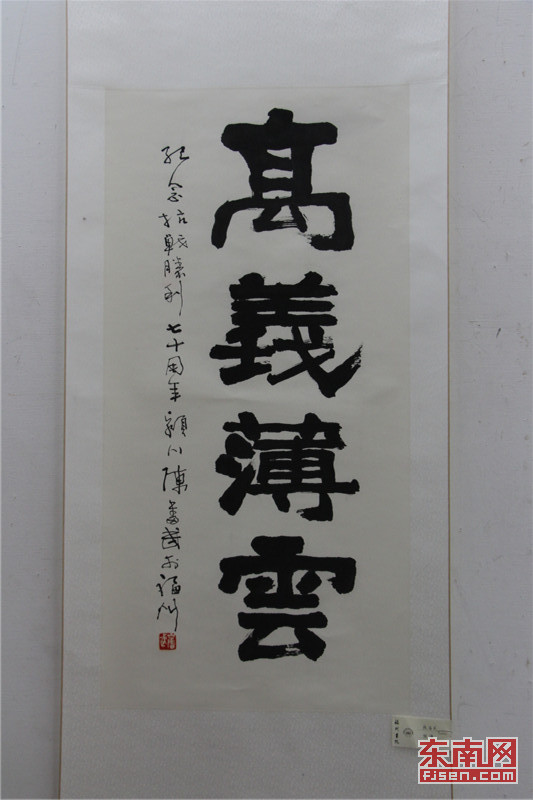 高義薄雲
紀念抗戰勝利七十周年潁川陳奮武於福州
东南网
fjsen.com